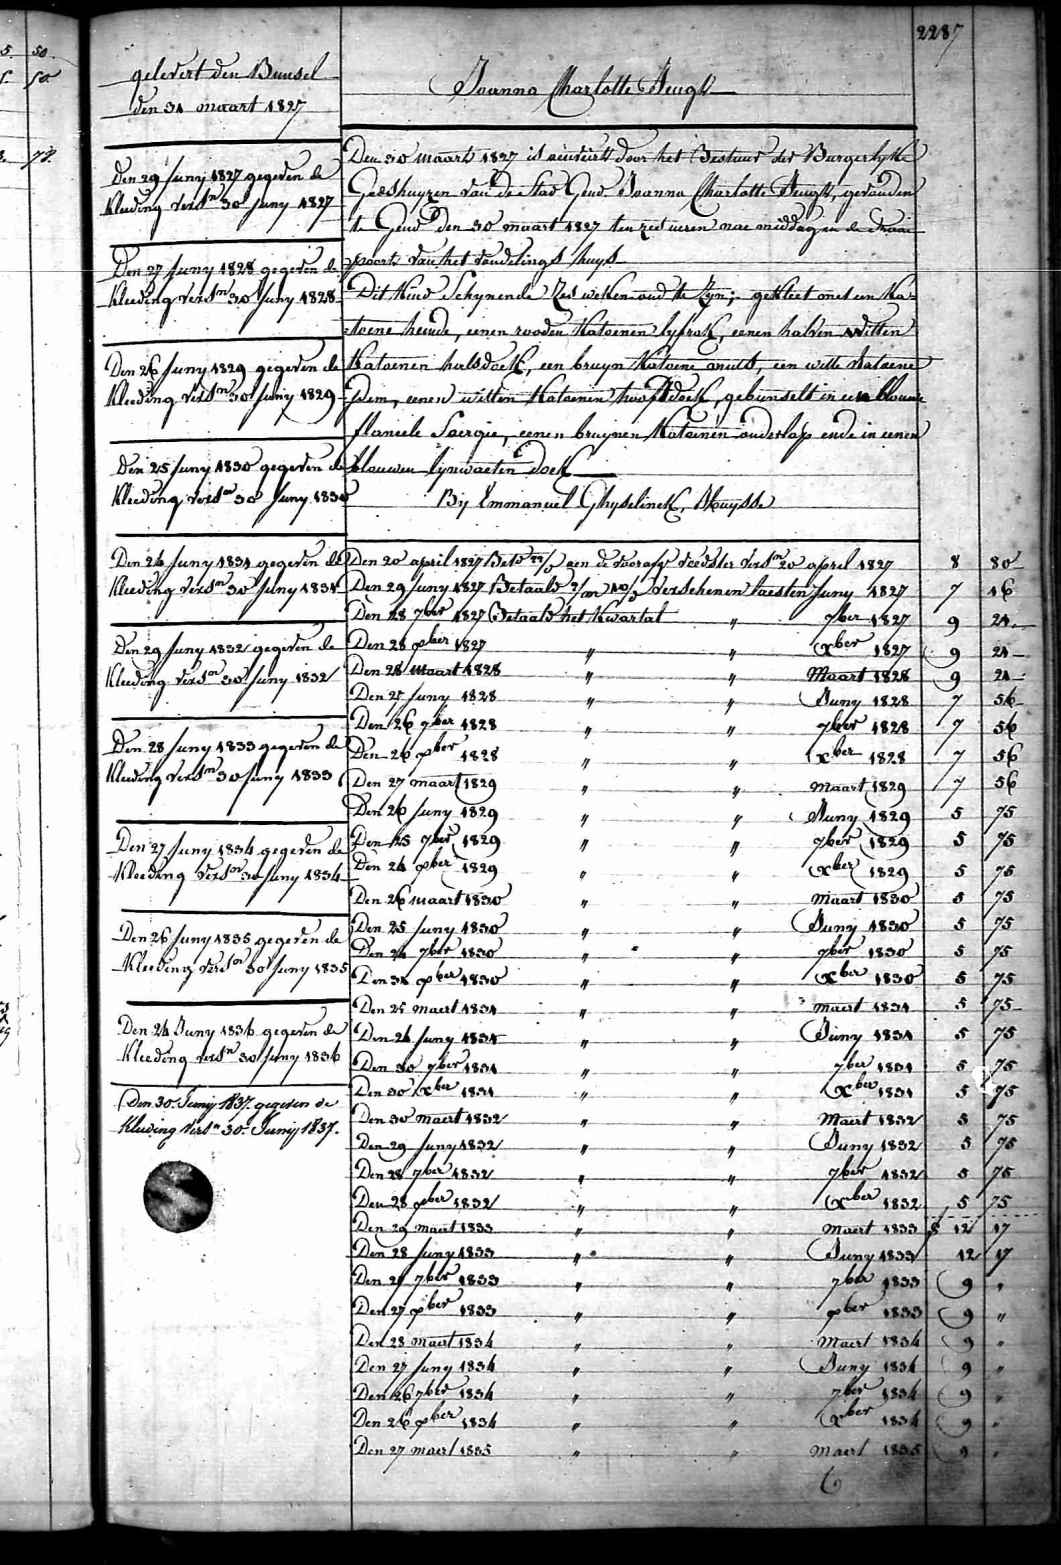 2287
gelevert den Bunsel
den 31 maart 1827
Den 29 Juny 1827 gegeven de
kleeding versn 30 Juny 1827
Den 27 Juny 1828 gegeven de
kleeding versn 30 Juny 1828
Den 26 Juny 1829 gegeven de
kleeding versn 30 Juny 1829
Den 25 Juny 1830 gegeven de
kleeding versn 30 Juny 1830
Den 24 Juny 1831 gegeven de
kleeding versn 30 Juny 1831
Den 29 Juny 1832 gegeven de
kleeding versn 30 Juny 1832
Den 28 Juny 1833 gegeven de
kleeding versn 30 Juny 1833
Den 27 Juny 1834 gegeven de
kleeding versn 30 Juny 1834
Den 26 Juny 1835 gegeven de
kleeding versn 30 Juny 1835
Den 24 Juny 1836 gegeven de
kleeding versn 30 Juny 1836
Den 30 Junij 1837 gegeven de
kleeding versn 30 Junij 1837.
Joanna Charlotte
Den 30 maart 1827 is door het Bestuur der Burgerlyke
Godshuyzen van de Stad Gend Joanna Charlotte gevonden
te Gend den 30 maart 1827 ten zes uren nae middag in de draai
poorte van het vondelings huys
Dit kind Schynende Zes weken oud te Zyn; gekleet met een Ka-
toene hemde, eenen rooden Katoenen lyfrok, eenen halven witten
Katoenen halsdoek, een bruyn Katoene muts, een witte Katoene
Idem, eenen witten Katoenen hoofdoek, gebunselt in een blouwe
flaniele Sargie, eenen bruynen Katoenen onderlap ende in eenen
blauwen lynwaeten doek
By Emmanuel Ghyselinck, Kluysse
Den 20 april 1827 Bet aen de voorafs voedster versn 20 april 1827 8 80
Den 29 Juny 1827 Betaald verschenen laesten Juny 1827 7 46
Den 28 7ber 1827 Betaald het Kwartal " 7ber 1827 9 24
Den 28 xber 1827 " " xber 1827 9 24
Den 28 maart 1828 " " Maart 1828 9 24
Den 27 Juny 1828 " " Juny 1828 7 56
Den 26 7ber 1828 " " 7ber 1828 7 56
Den 26 xber 1828 " " xber 1828 7 56
Den 27 maart 1829 " " maart 1829 7 56
Den 26 Juny 1829 " " Juny 1829 5 75
Den 25 7ber 1829 " " 7ber 1829 5 75
Den 24 xber 1829 " " xber 1829 5 75
Den 26 maart 1830 " " maart 1830 5 75
Den 25 Juny 1830 " " Juny 1830 5 75
Den 24 7ber 1830 " " 7ber 1830 5 75
Den 31 xber 1830 " " xber 1830 5 75
Den 25 maert 1831 " " maert 1831 5 75
Den 24 Juny 1831 " " Juny 1831 5 75
Den 30 7ber 1831 " " 7ber 1831 5 75
Den 30 xber 1831 " " xber 1831 5 75
Den 30 maert 1832 " " Maert 1832 5 75
Den 29 Juny 1832 " " Juny 1832 5 75
Den 28 7ber 1832 " " 7ber 1832 5 75
Den 28 xber 1832 " " xber 1832 5 75
Den 29 maert 1833 " " Maert 1833 12 17
Den 28 Juny 1833 " " Juny 1833 12 17
Den 27 7ber 1833 " " 7ber 1833 9 "
Den 27 xber 1833 " " xber 1833 9 "
Den 28 maert 1834 " " Maert 1834 9 "
Den 27 Juny 1834 " " Juny 1834 9 "
Den 26 7ber 1834 " " 7ber 1834 9 "
Den 26 xber 1834 " " xber 1834 9 "
Den 27 maert 1835 " " maert 1835 9 "